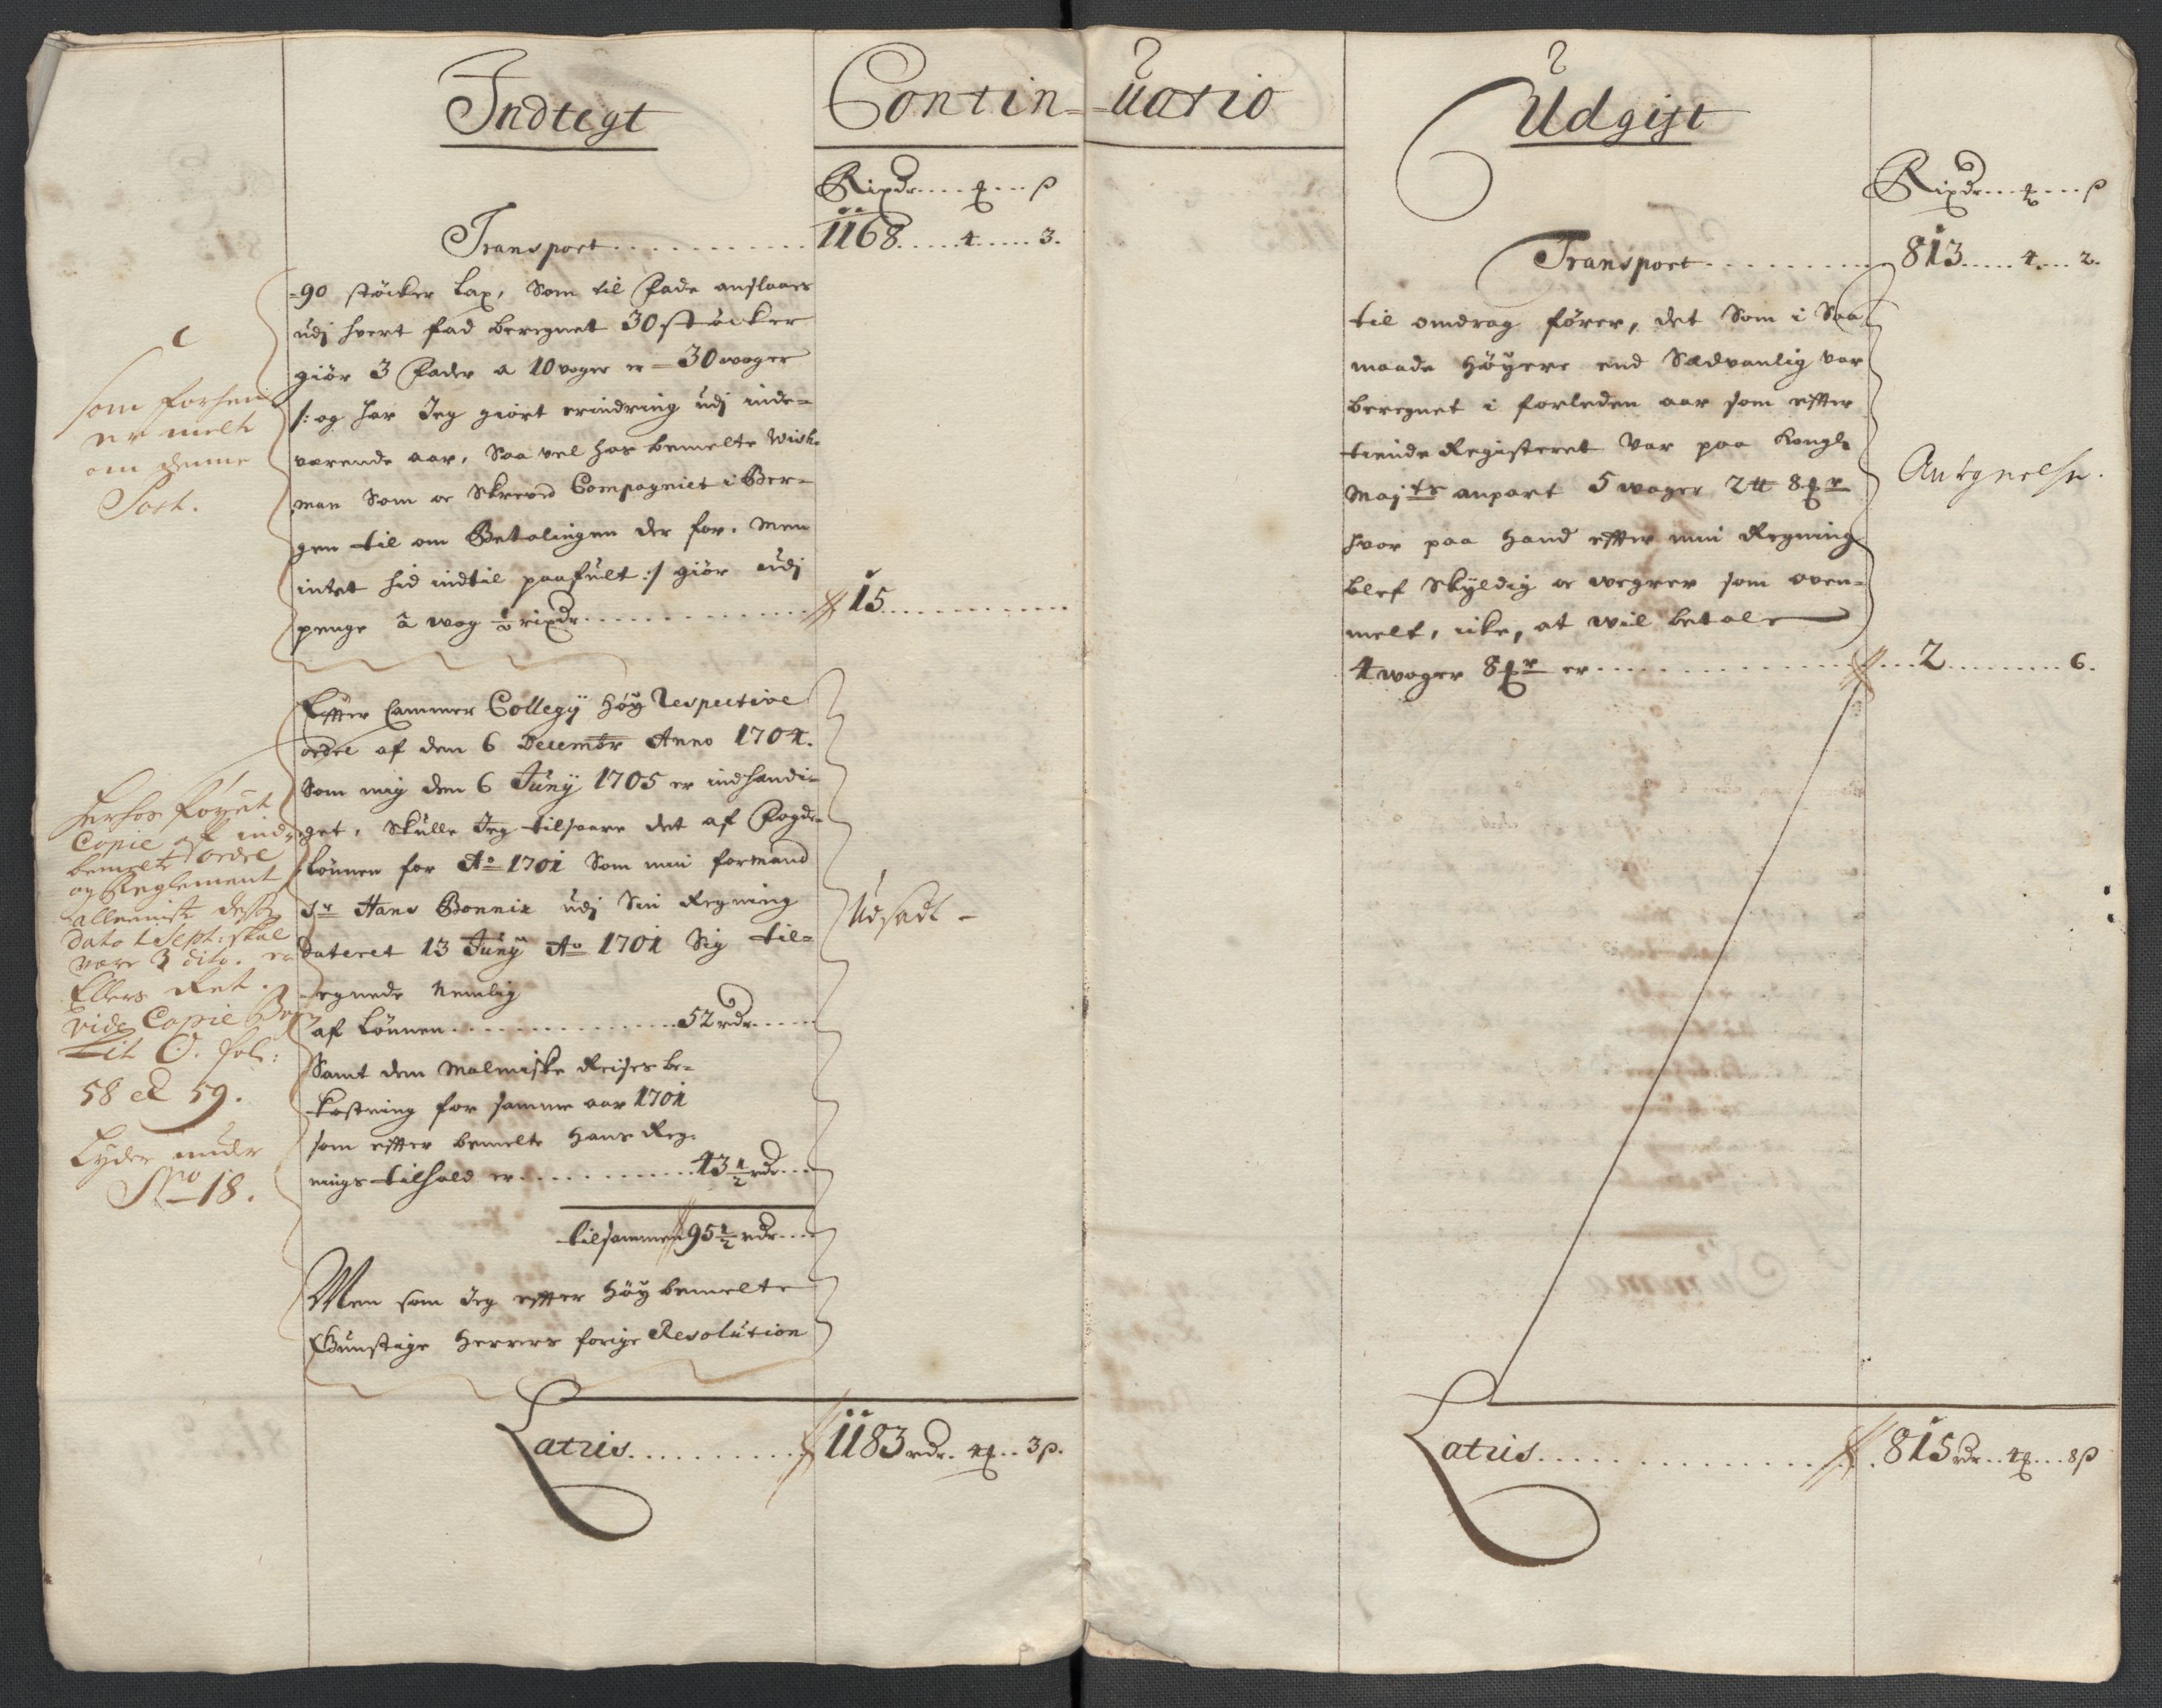 Indtegt
Contin=
=uatio
Udgift
Rixdr.... ... ß
Transport............ 1168.....4......3.
=90 støcker Lax, Som til Fade anslaaes
udj hvert fad beregnet 30 støcker
giør 3 Fader a 10 voger er = 30 woger
/: og har Jeg giort erindring udj inde=
værende aar, Saa vel hos bemelte Wich=
man Som oc Skreved Compagniet i Ber=
gen til om Betalingen der for, Men
intet hid indtil paafult :/ giør udj
penge â wog ½ rixdr............. 15............
Effter Cammer Collegij Høy Respective
ordre af dem 6 Decembr Anno 1704.
Som mig den 6 Junij 1705 er indhandi=
get, Skulle Jeg tilsvare det af Fogde=
Lønnen for Ao 1701 Som min formand
Sr Hans Bonnix udj Sin Regning
Dateret 13 Junij Ao 1701 Sig til=
egnede Nemlig
af Lønnen...............52 rdr.....
Samt dem Malmiske Reises be=
kostning for samme aar 1701
som effter bemelte Hans Reg=
nings tilhold er............43½ rdr...
tilsammen 95½ rdr...
Men som Jeg effter Høybemelte
Gunstige Herrers forige Resolution
Latris.......... 1183 rdr. 4 .. 3ß.
som forhen
er melt
om denne
Post.
Herhos føyet
Copie af ind=
bemelte ordre
og Reglement
alleeniste dessen
dato 1 Sept: skal
være 3 dito. er
Ellers Ret.
vide Copie Bog
Lit O. fol:
58 et 59.
Lyder under
No 18.
Udsadt -
Rixdr... .... ß
Transport.......... 813.....4....2.
til omdrag fører, det Som i Saa
maade Høyere end Sædvanlig var
beregnet i forleden aar som effter
tiende Registeret var paa Kongl:
Majts anpart 5 woger 2 8
hvor paa Hand effter min Regning
blef Skyldig oc wegrer som oven=
melt, icke, at wil betale
4 woger 8 er.................2..........6.
Antegnelse.
Latris.................. 815 rdr..4 ...8ß